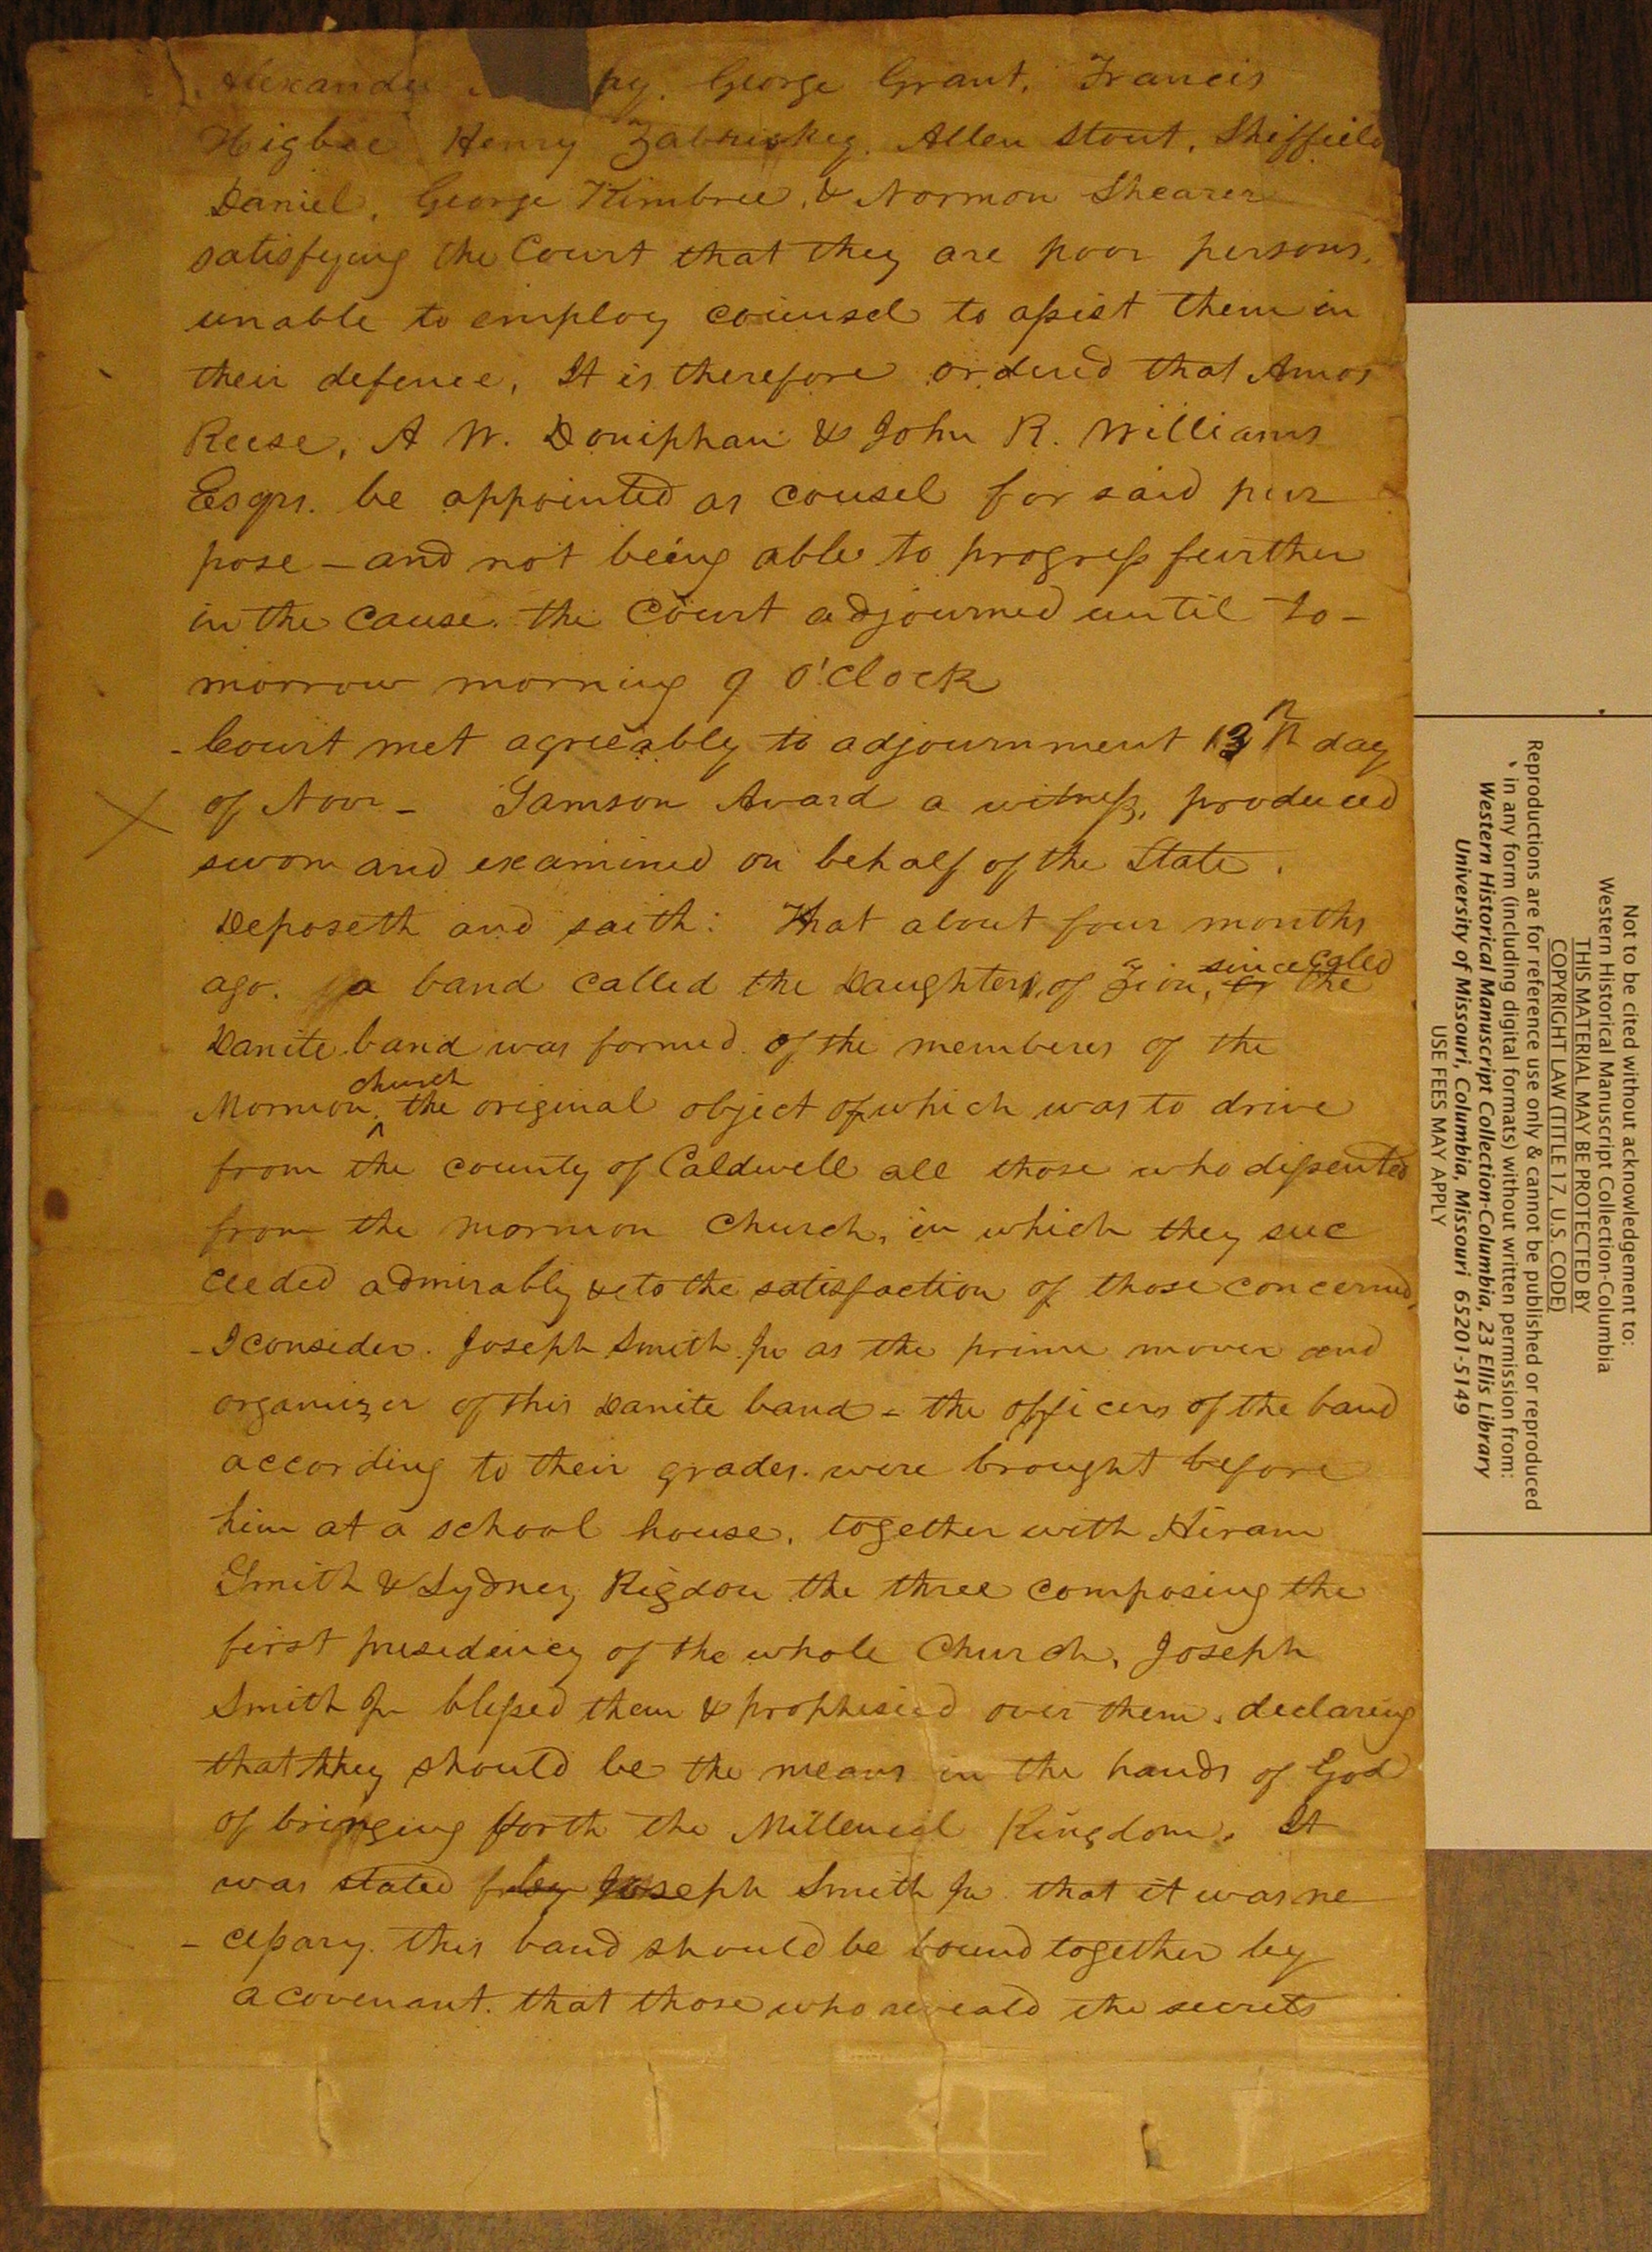 Alexander py. George Grant. Francis
Higbee Henry Zabriskey. Allen Stout. Sheffield
Daniel. George Kimbree. & Normon Shearer
satisfying the Court that they are poor persons.
unable to employ counsel to assist them in
their defence, It is therefore ordered that Amos
Reese, A W. Doniphan & John R. Williams
Esqrs. be appointed as cousel for said pur
pose – and not being able to progress further
in the cause. the Court adjourned until to-
morrow morning 9 O'Clock
- Court met agreeably to adjournment 13th day
of Novr - Samson Avard a witness, produced
sworn and examined on behalf of the State.
Deposeth and saith: That about four months
since caled
ago. a band called the Daughters of Zion, or the
Danite band was formed of the members of the
church
Mormon, the original object of which was to drive
from the county of Caldwell all those who dissented
from the mormon church, in which they suc
ceeded admirably & to the satisfaction of those concerned,
- I consider. Joseph Smith Jr as the prime mover and
organizer of this Danite band - the officers of the band
according to their grades. were brought before
him at a school house. together with Hiram
Smith & Sydney Rigdon the three composing the
first presidency of the whole Church, Joseph
Smith Jr blessed them & prophesied over them. declaring
that they should be the means in the hands of God
of bringing forth the Millenial Kingdom. It
was stated by Joseph Smith Jr that it was ne
- cessary. this band should be bound together by
a covenant. that those who reveald the secrets
Not to be cited without acknowledgement to:
Western Historical Manuscript Collection-Columbia
THIS MATERIAL MAY BE PROTECTED BY
COPYRIGHT LAW (TITLE 17, U.S. CODE)
Reproductions are for reference use only & cannot be published or reproduced
in any form (including digital formats) without written permission from:
Western Historical Manuscript Collection-Columbia, 23 Ellis Library
University of Missouri, Columbia, Missouri 65201-5149
USE FEES MAY APPLY